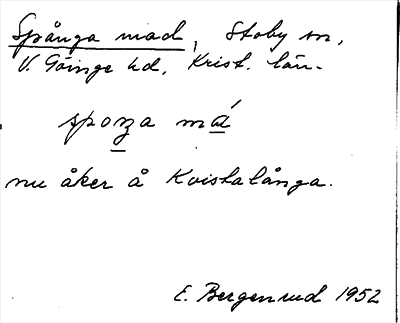 Spånga mad, Stoby sn,
V. Göinge hd, Krist. län.
spoŋa má
nu åker å Kvistalånga.
E. Bergenrud 1952